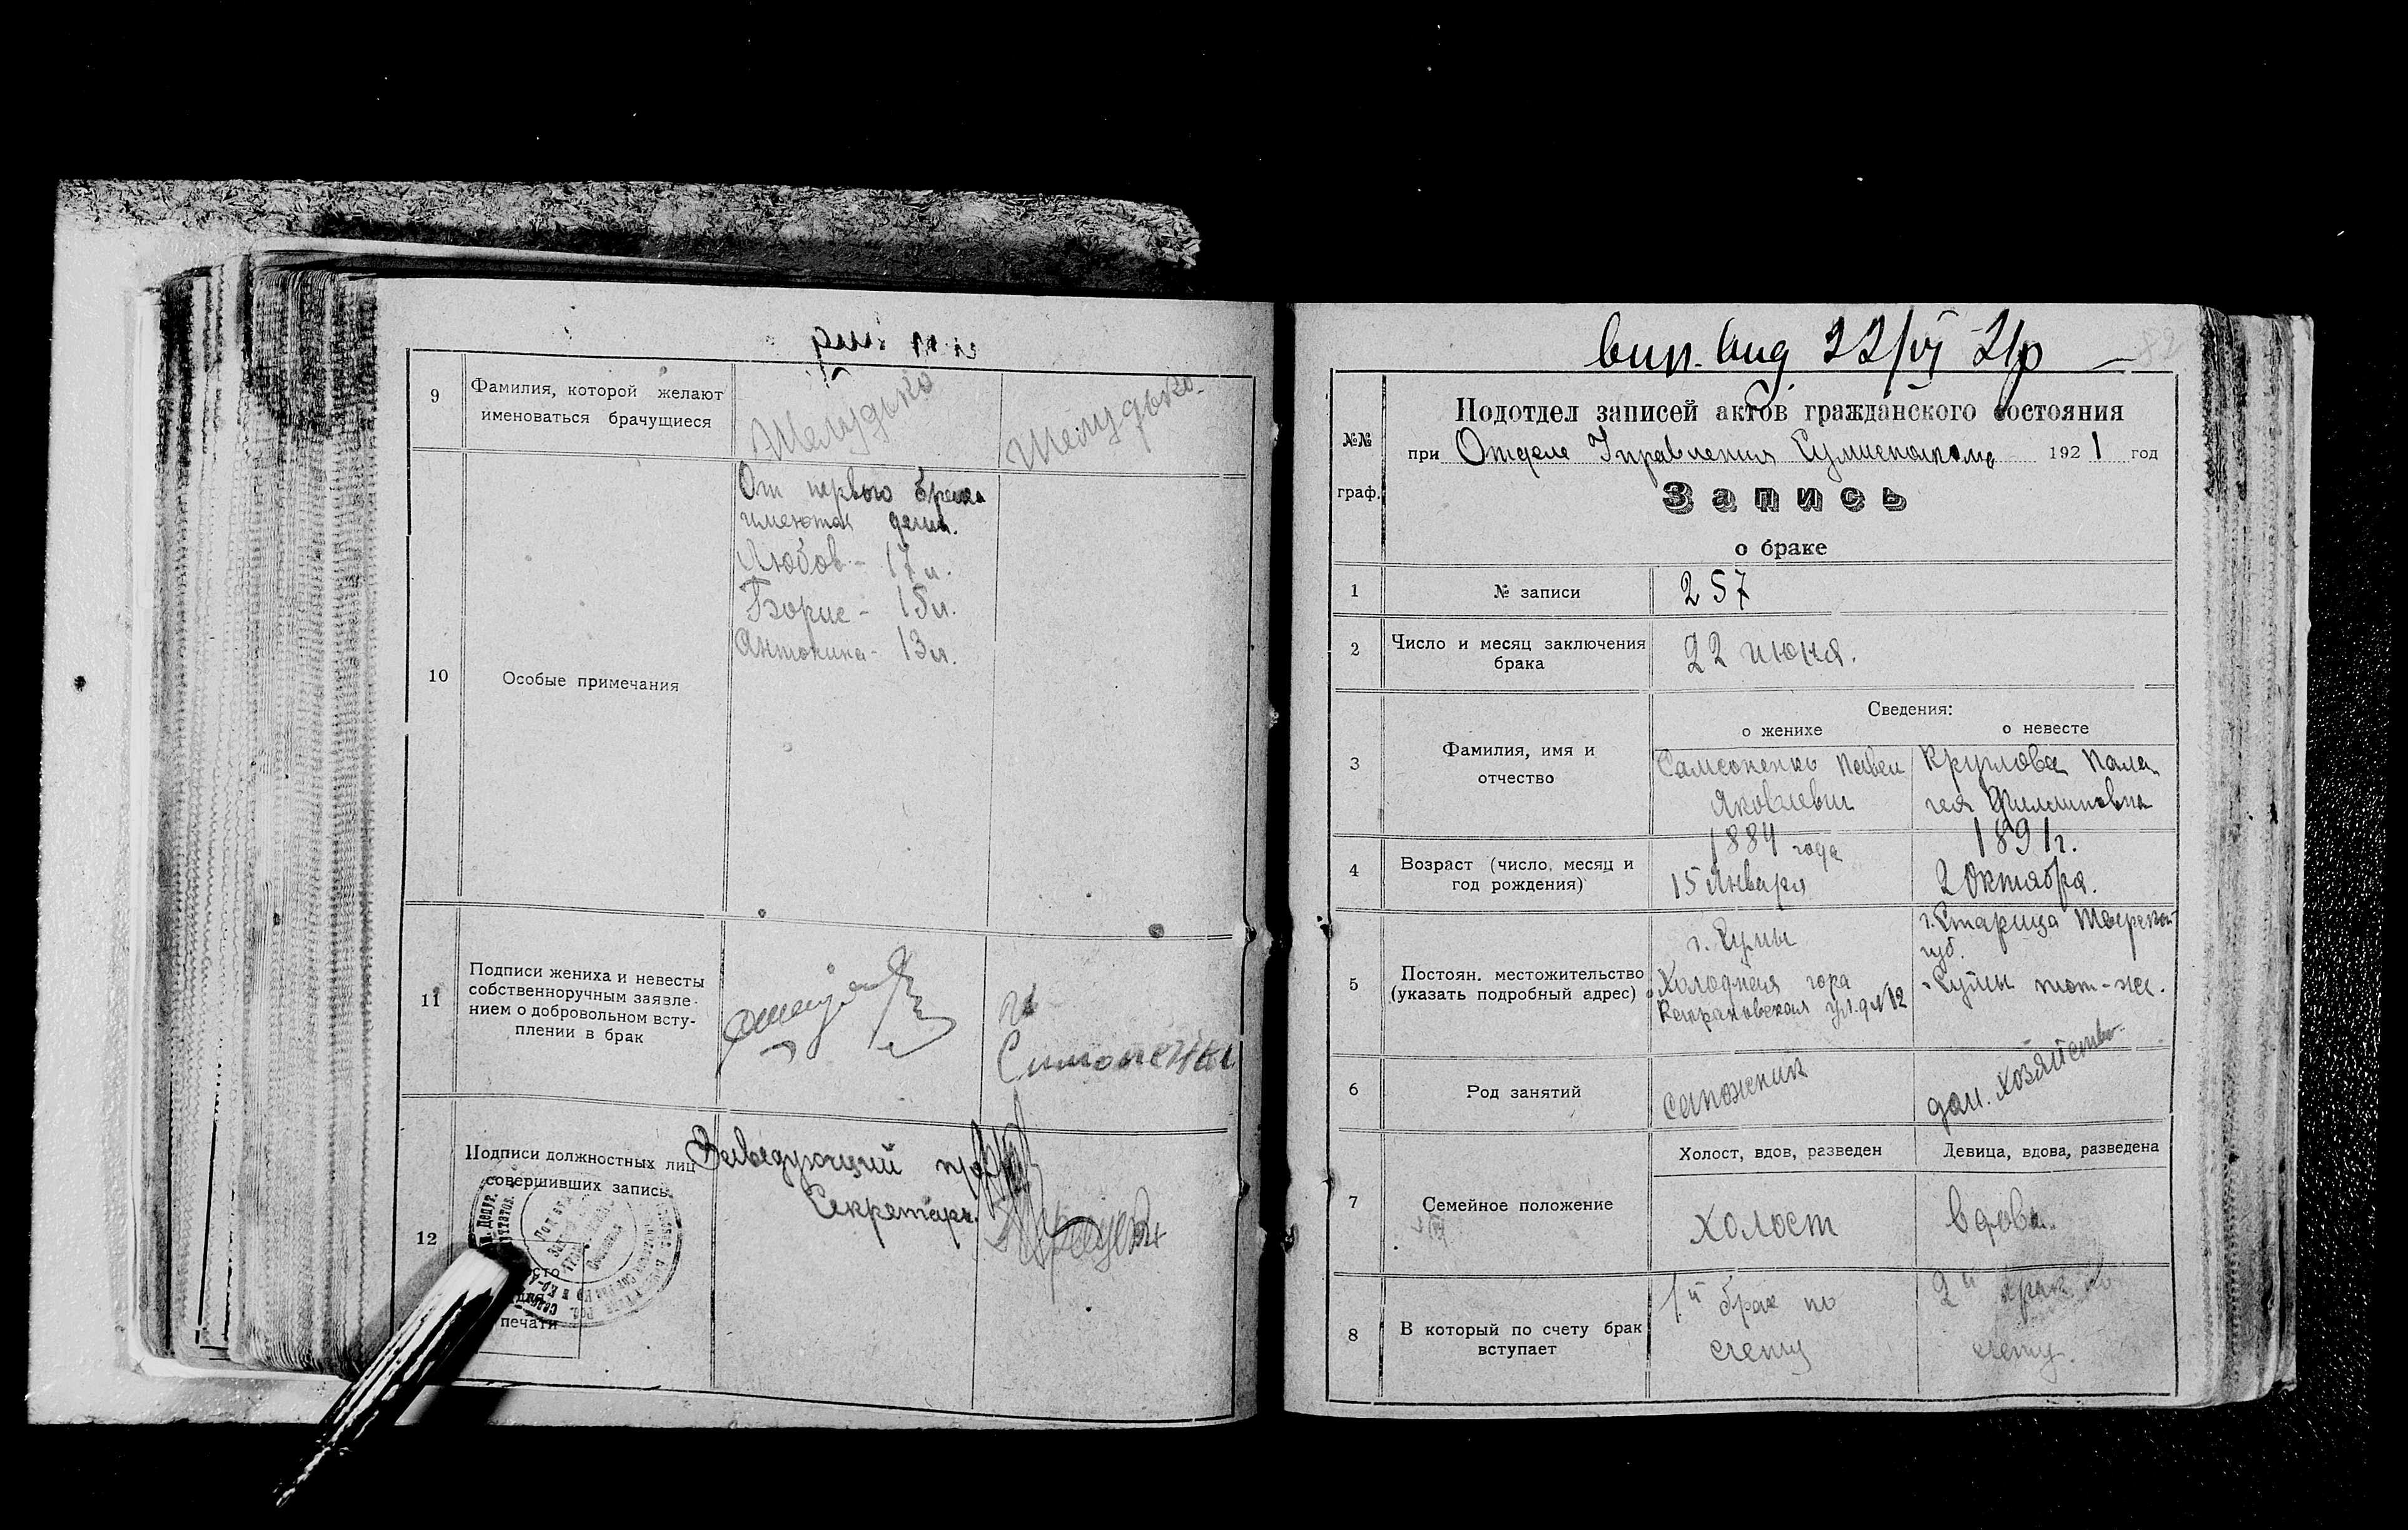 9
Фамилия, которой желают
именоваться брачущиеся
Шелудько
Шелудько
10
Особые примечания
От первого брака
имеются дети.
Любов - 17 л.
Борис - 15 л.
Антонина - 13 л.
11
Подписи жениха и невесты
собственноручным заявле-
нием о добровольном всту-
плении в брак
12
Подписи должностных лиц
совершивших запись
Заведующий
Секретарь
печати
вип. вид 22/VI 21р
82
№№
граф.
Подотдел записей актов гражданского состояния
при Отделе Управления Сумисполкома 1921 год
Запись
о браке
1
№ записи
257
2
Число и месяц заключения
брака
22 июня.
3
Фамилия, имя и
отчество
Сведения:
о женихе
о невесте
Самсоненко Павел
Яковлевич
Круглова Пала
гея Филиповна
4
Возраст (число, месяц и
год рождения)
1884 года
15 Января
1891 г.
2 Октября.
5
Постоян. местожительство
(указать подробный адрес)
г. Сумы
Холодная гора
ул. д №12
г. Старица Тверской
губ.
Сумы там-же.
6
Род занятий
сапожник
дом. хозяйство
7
Семейное положение
Холост, вдов, разведен
Девица, вдова, разведена
холост
вдова.
8
В который по счету брак
вступает
1й брак по
счету
2й брак по
счету.